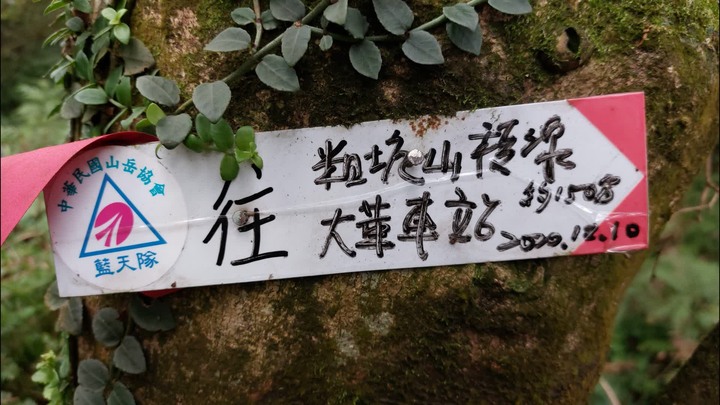 中華民國山岳協會
藍天隊
往
粗坑山
大華車站
約150分
2020.12.10